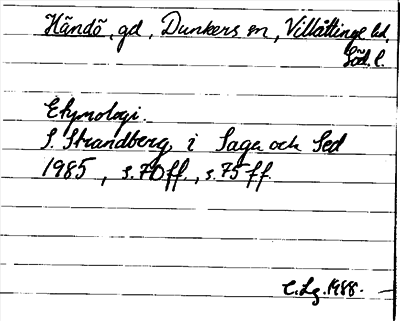 Händö, gd, Dunkers sn, Villåttinge hd,
Söd. l.
Etymologi.
S. Strandberg i Saga och Sed
1985, s. 70 ff., s. 75 ff.
C. Lg. 1988.